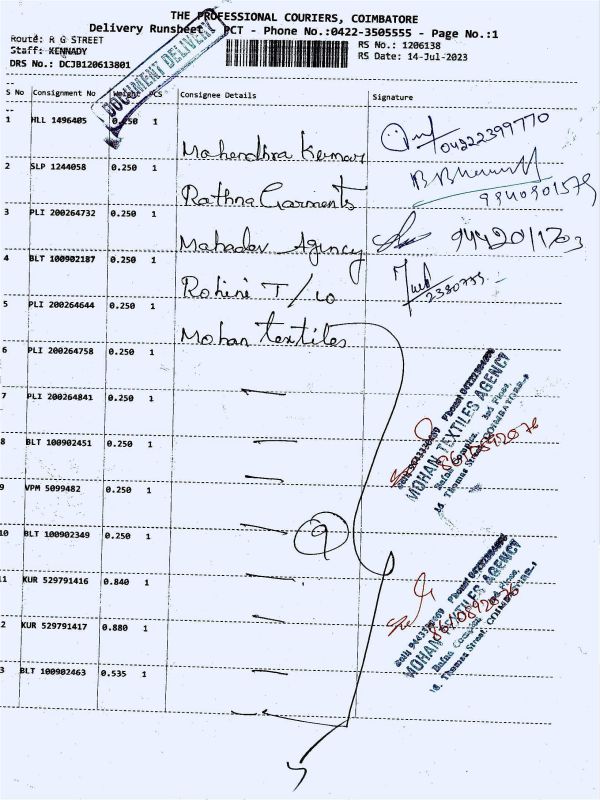 THE PROFESSIONAL COURIERS, COIMBATORE
Delivery Runsheet PCT - Phone No.:0422-3505555 - Page No.:1
Route: R G STREET
RS No.: 1206138
Staff: KENNADY
RS Date: 14-Jul-2023
DRS No.: DCJB120613801
DOCUMENT DELIVERY
S No Consignment No Weight PCS Consignee Details Signature
1 HLL 1496405 0.250 1
04222399770
Mahendhra Kumar
2 SLP 1244058 0.250 1
9940901579
Rathna Garments
3 PLI 200264732 0.250 1
Mahadev Agency
4 BLT 100902187 0.250 1
Rohini T/
5 PLI 200264644 0.250 1
Mohan textiles
6 PLI 200264758 0.250 1
7 PLI 200264841 0.250 1
MOHAN TEXTILES AGENCY
8 BLT 100902451 0.250 1
9 VPM 5099482 0.250 1
9
10 BLT 100902349 0.250 1
11 KUR 529791416 0.840 1
MOHAN TEXTILES AGENCY
2 KUR 529791417 0.880 1
3 BLT 100902463 0.535 1